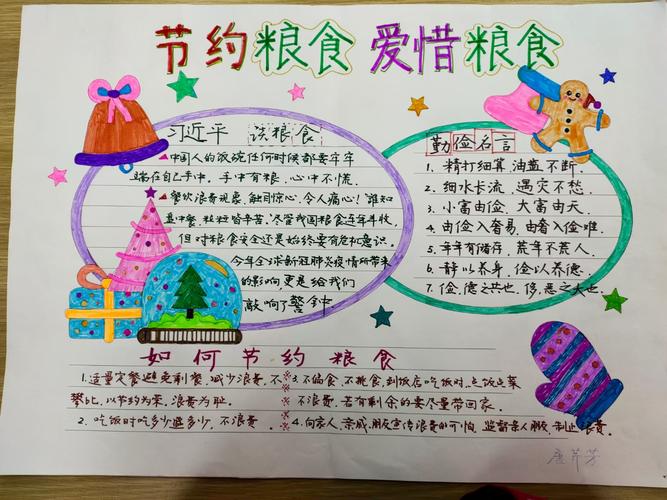 节约粮食 爱惜粮食
习近平 谈粮食
中国人的饭碗任何时候都要牢牢
端在自己手中，手中有粮，心中不慌.
餐饮浪费现象，触目惊心、令人痛心！谁知
盘中餐，粒粒皆辛苦。尽管我国粮食连年丰收，
但对粮食安全还是始终要有危机意识.
今年全球新冠肺炎疫情所带来
的影响更是给我们
敲响了警钟
勤俭名言
1、精打细算，油盐不断.
2、细水长流，遇灾不愁.
3、小富由俭，大富由天.
4、由俭入奢易，由奢入俭难.
5、年年有储存，荒年不荒人.
6、静以养身，俭以养德.
7、俭，德之共也，侈，恶之大也.
如何节约粮食
1.适量定餐避免剩餐，减少浪费，不
攀比，以节约为荣，浪费为耻.
2、吃饭时吃多少盛多少，不浪费.
3.不偏食，不挑食，到饭店吃饭时，点饭点菜
不浪费，若有剩余的要尽量带回家.
4.向家人、亲戚、朋友宣传浪费的可怕，监督亲人朋友，制止浪费.
唐芹芳